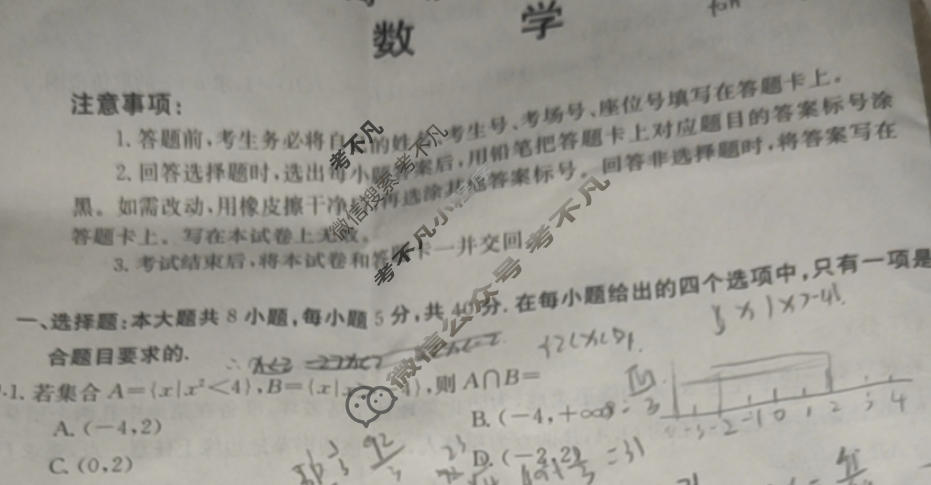 数 学
注意事项:
1.答题前,考生务必将自己的姓名、考生号、考场号、座位号填写在答题卡上。
2.回答选择题时,选出每小题答案后,用铅笔把答题卡上对应题目的答案标号涂
黑。如需改动,用橡皮擦干净后,再选涂其他答案标号。回答非选择题时,将答案写在
答题卡上。写在本试卷上无效。
3.考试结束后,将本试卷和答题卡一并交回。
一、选择题:本大题共8小题,每小题5分,共40分.在每小题给出的四个选项中,只有一项是
合题目要求的.
1.若集合A={x|x²<4},B={x|x 4},则A∩B=
A.(-4,2)
B.(-4,+∞)
C.(0,2)
D.(-2,2)
-2 -1 0 1 2 3 4
考不凡
微信搜索考不凡
考不凡小程序
微信公众号 考不凡